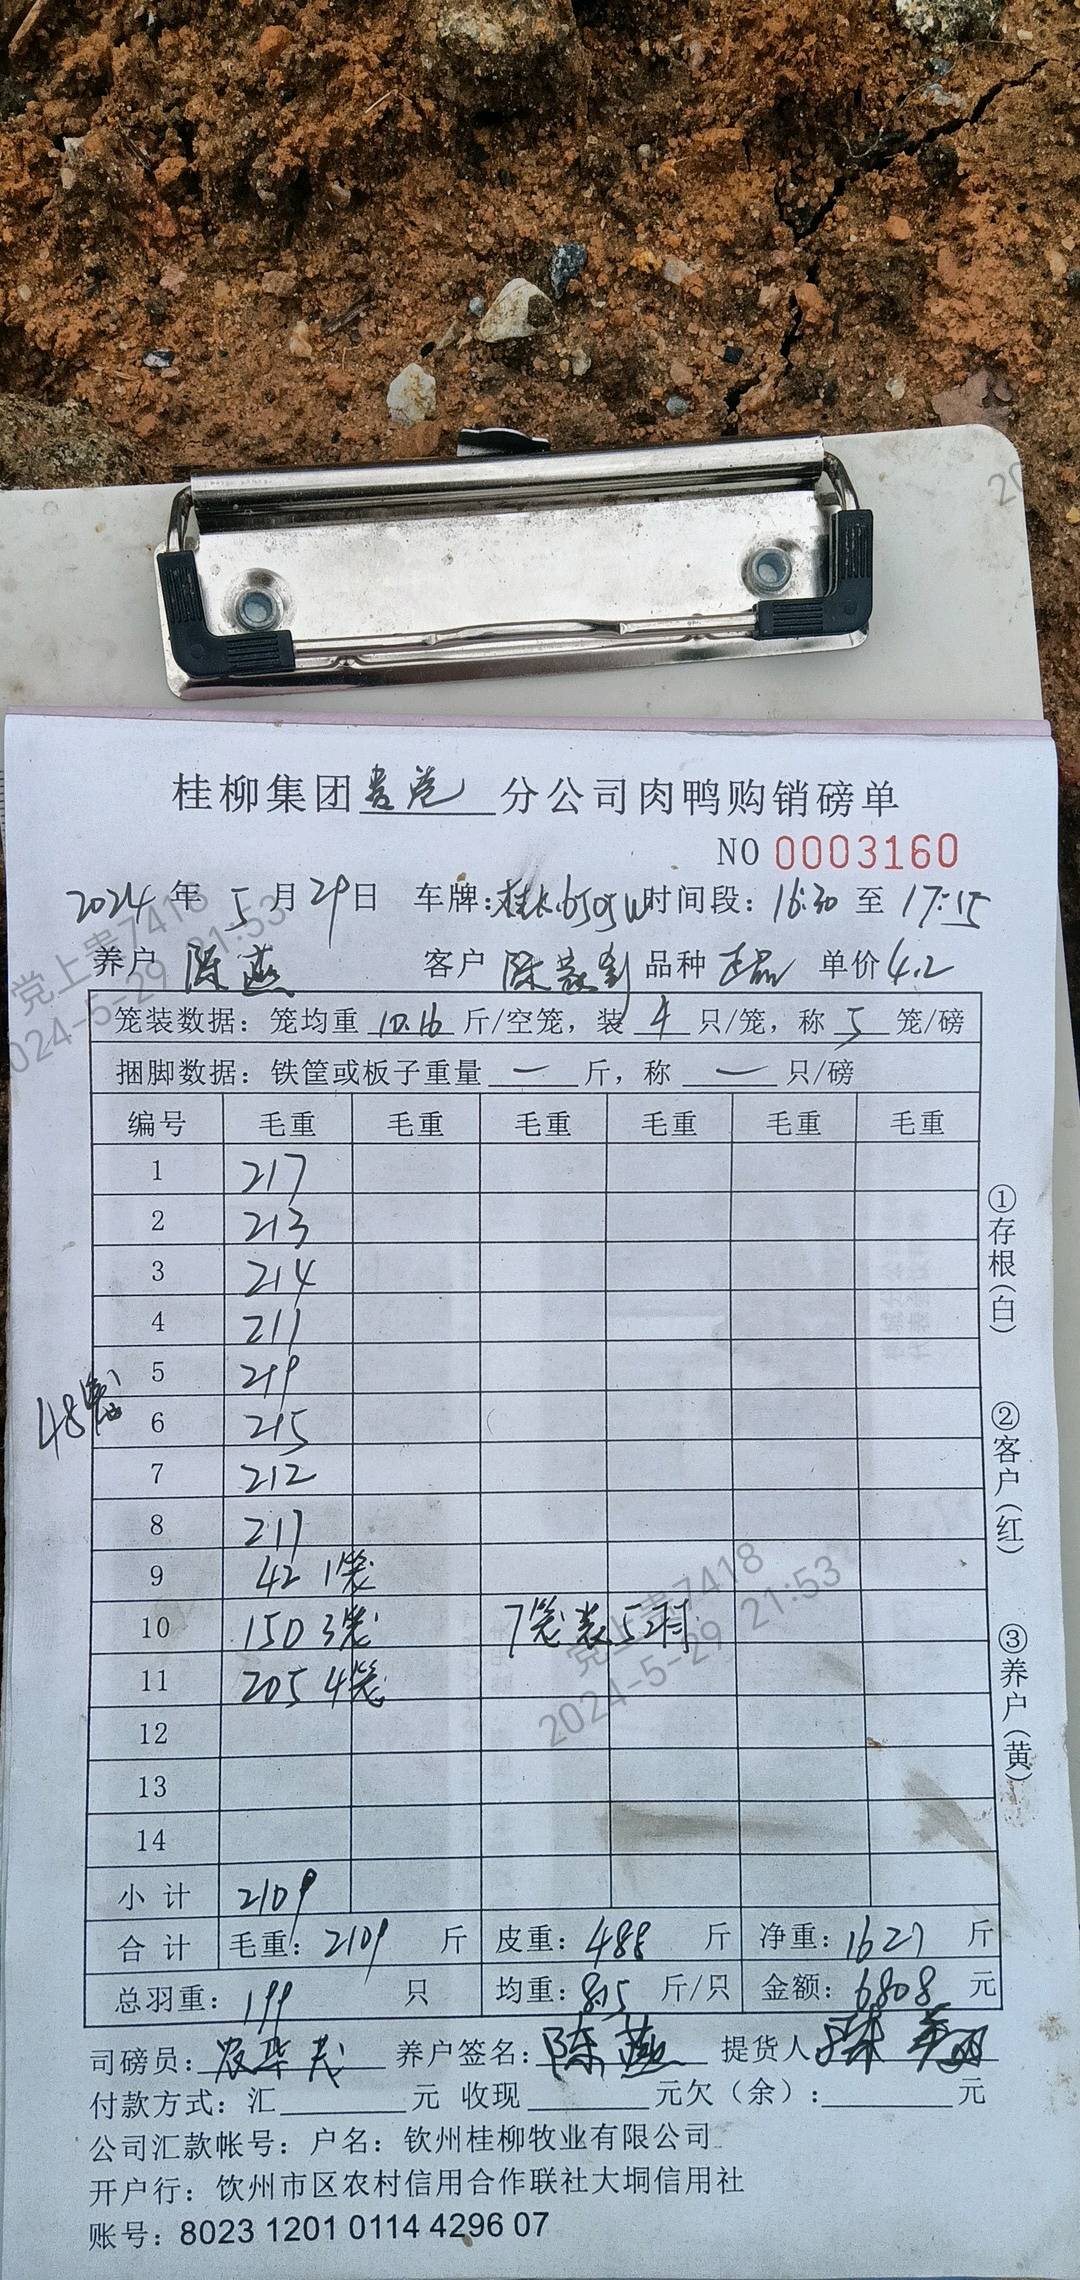 桂柳集团贵港分公司肉鸭购销磅单
NO 0003160
2024年5月29日 车牌:桂K6505W 时间段:16:30至17:15
养户 陈燕 客户 陈家剑 品种 正品 单价4.2
笼装数据:笼均重 10.16 斤/空笼,装 4 只/笼,称 5 笼/磅
捆脚数据:铁筐或板子重量 — 斤,称 — 只/磅
编号 毛重 毛重 毛重 毛重 毛重 毛重
1 217
2 213
3 214
4 211
5 219
6 215
7 212
8 211
9 42 1笼
10 150 3笼 7笼装5只
11 205 4笼
12
13
14
48笼
小计 2109
合计 毛重:2109 斤 皮重:488 斤 净重:1621 斤
总羽重:199 只 均重:8.15 斤/只 金额:6808 元
司磅员: 养户签名:陈燕 提货人
付款方式:汇 元 收现 元欠(余): 元
公司汇款帐号:户名:钦州桂柳牧业有限公司
开户行:饮州市区农村信用合作联社大垌信用社
账号:8023 1201 0114 4296 07
①存根(白)
②客户(红)
③养户(黄)
党上贵7418
2024-5-29 21:53
党上贵7418
2024-5-29 21:53
20